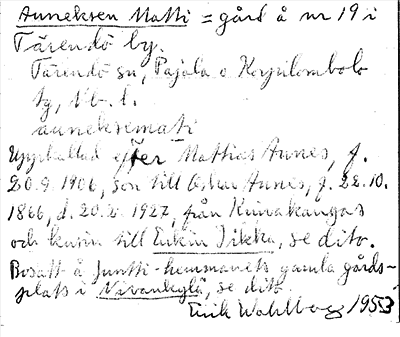 Anneksen Matti = gård å nr 19 i
Tärendö by.
Tärendö sn, Pajala o Korpilombolo
tg, Vb. l.
anneksemati
Uppkallad efter Mathias Annes, f.
20.9 1906, son till Oskar Annes, f. 22.10.
1866, d. 20.5 1927, från Kunrakangas
och kusin till Enkin Iikka, se dito.
Bosatt å Juntti-hemmanets gamla gårds-
plats i Niivankylä, se dito.
Erik Wahlberg 1953